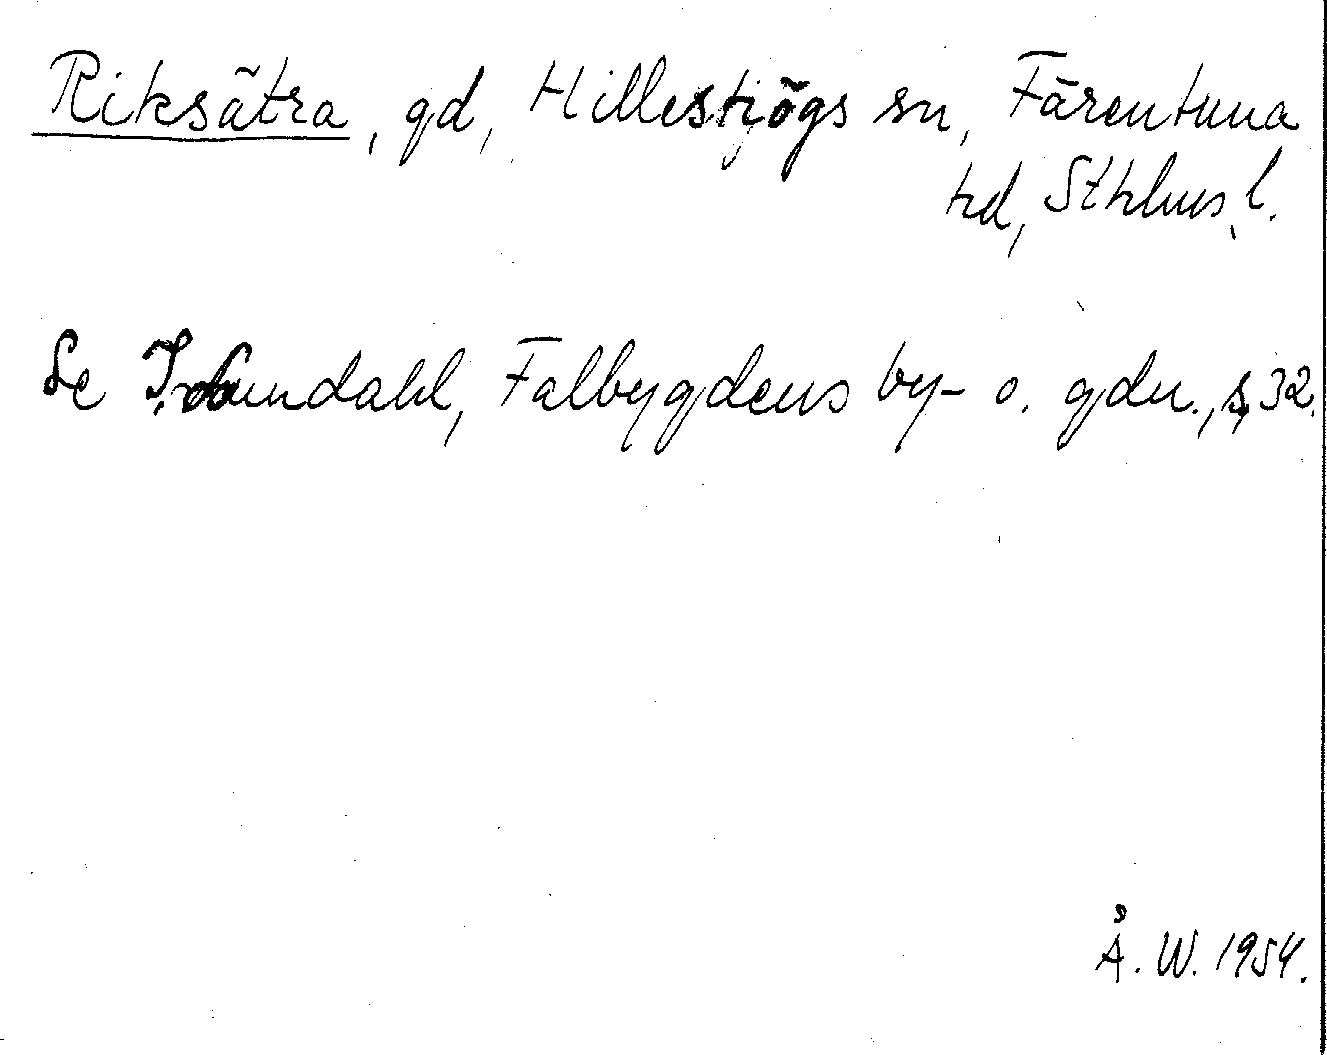 Riksätra, gd, Hilleshögs sn, Färentuna
hd, Sthlms l.
Se I. Lundahl, Falbygdens by- o. gdn., s. 32.
Å. W. 1954.